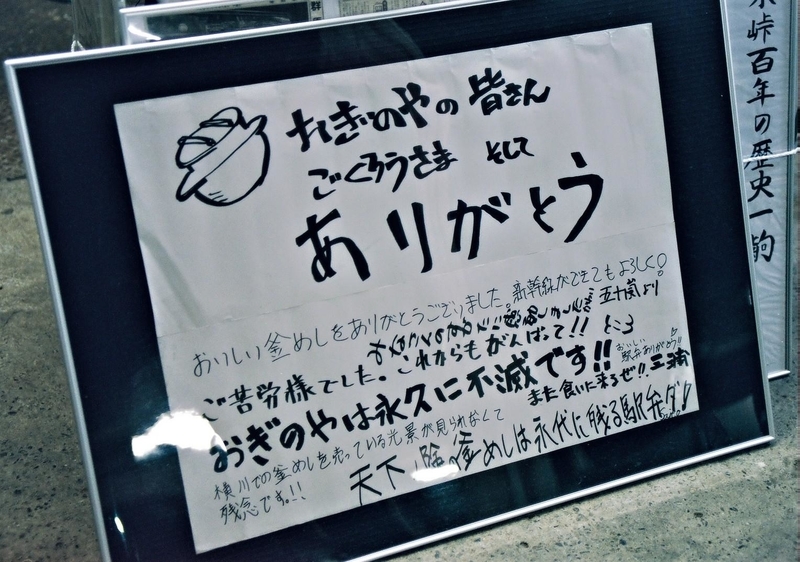 おぎのやの皆さん
ごくろうさま そして
ありがとう
おいしい釜めしをありがとうございました。新幹線ができてもよろしく!
五十嵐より
ご苦労様でした。これからもがんばって!!
おいしい
駅弁ありがとう!!
おぎのやは永久に不滅です!!
また食いに来るぜ!! 三浦
横川での釜めしを売っている光景が見られなくて
残念です。!!
天下
釜めしは永代に残る駅弁ダ!
峠百年の歴史一駒
群